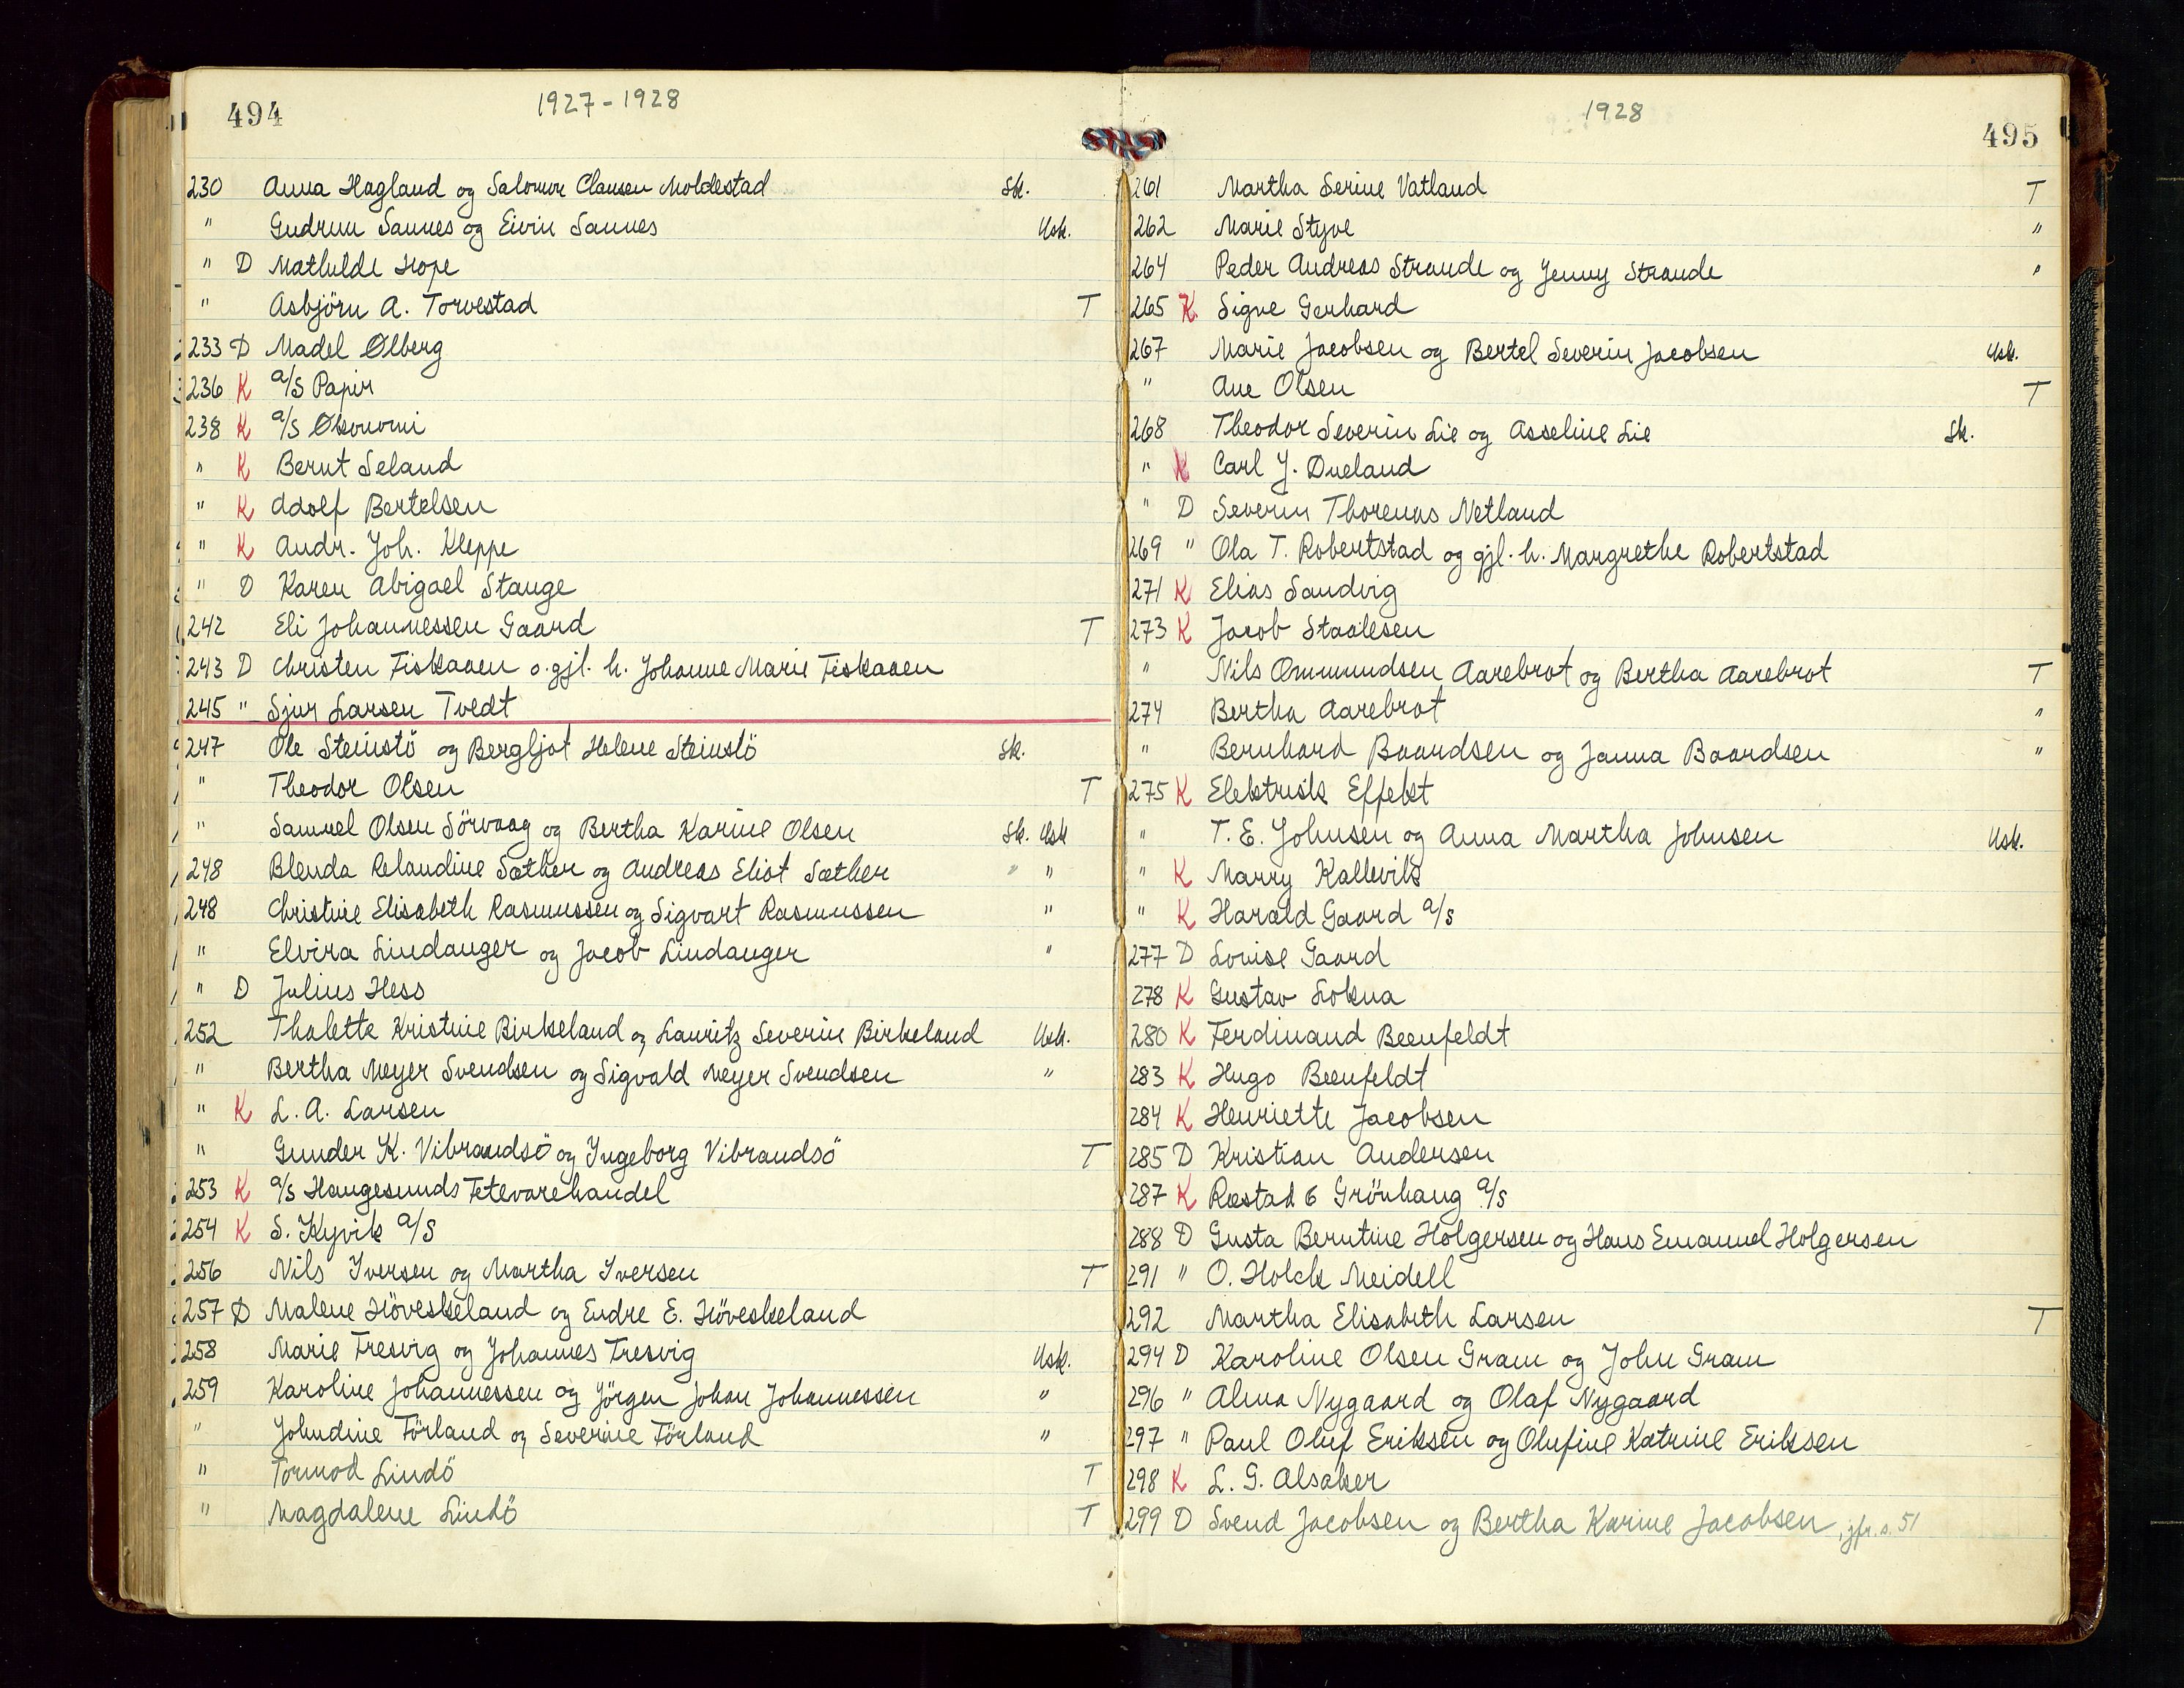 494
1927-1928
230 Anna Hagland og Salomon Clausen Moldestad Sk.
" Gudrun Sannes og Eivin Sannes Usk.
" D Mathilde Hope
" Asbjörn A. Torvestad T
233 D Madel Ølberg
236 K a/s Papir
238 K a/s Økonomi
" K Bernt Seland
" K Adolf Bertelsen
" K Andr. Joh. Kleppe
" D Karen Abigael Stange
242 Eli Johannessen Gaard T
243 D Christen Fiskaaen o. gjl. h. Johanne Marie Fiskaaen
245 " Sjur Larsen Tvedt
247 Ole Steinstö og Bergljot Helene Steinstö Sk.
" Theodor Olsen T
" Samuel Olsen Sörvaag og Bertha Karine Olsen Sk. Usk
248 Blenda Relandine Sæther og Andreas Eliot Sæther " "
248 Christine Elisabeth Rasmussen og Sigvart Rasmussen "
" Elvira Lindanger og Jacob Lindanger "
" D Julius Hess
252 Thalette Kristine Birkeland og Lauritz Severin Birkeland Usk.
" Bertha Meyer Svendsen og Sigvald Meyer Svendsen "
" K L. A. Larsen
" Gunder K. Vibrandsö og Ingeborg Vibrandsö T
253 K a/s Haugesunds Fetevarehandel
254 K S. Kyvik a/s
256 Nils Iversen og Martha Iversen T
257 D Malene Höveskeland og Endre E. Höveskeland
258 Marie Tresvig og Johannes Tresvig Usk.
259 Karoline Johannessen og Jörgen Johan Johannessen "
" Johndine Förland og Severine Förland "
" Tormod Lindö T
" Magdalene Lindö T
1928
495
261 Martha Serine Vatland T
262 Marie Styve "
264 Peder Andreas Strande og Jenny Strande "
265 K Signe Gerhard
267 Marie Jacobsen og Bertel Severin Jacobsen Usk.
" Ane Olsen T
268 Theodor Severin Lie og Asseline Lie Sk.
" K Carl J. Dueland
" D Severin Thorenas Netland
269 " Ola T. Robertstad og gjl. h. Margrethe Robertstad
271 K Elias Sandvig
273 K Jacob Staalesen
" Nils Ommundsen Aarebrot og Bertha Aarebrot T
274 Bertha Aarebrot "
" Bernhard Baardsen og Janna Baardsen "
275 K Elektrisk Effekt
" T. E. Johnsen og Anna Martha Johnsen Usk.
" K Marry Kallevik
" K Harald Gaard a/s
277 D Louise Gaard
278 K Gustav Lokna
280 K Ferdinand Beenfeldt
283 K Hugo Beenfeldt
284 K Henriette Jacobsen
285 D Kristian Andersen
287 K Røstad & Grönhaug a/s
288 D Gusta Berntine Holgersen og Hans Emanuel Holgersen
291 " O. Holck Meidell
292 Martha Elisabeth Larsen T
294 D Karoline Olsen Gram og John Gram
296 " Alma Nygaard og Olaf Nygaard
297 " Paul Oluf Eriksen og Olufine Katrine Eriksen
298 K L. G. Alsaker
299 D Svend Jacobsen og Bertha Karine Jacobsen, jfr. s. 51